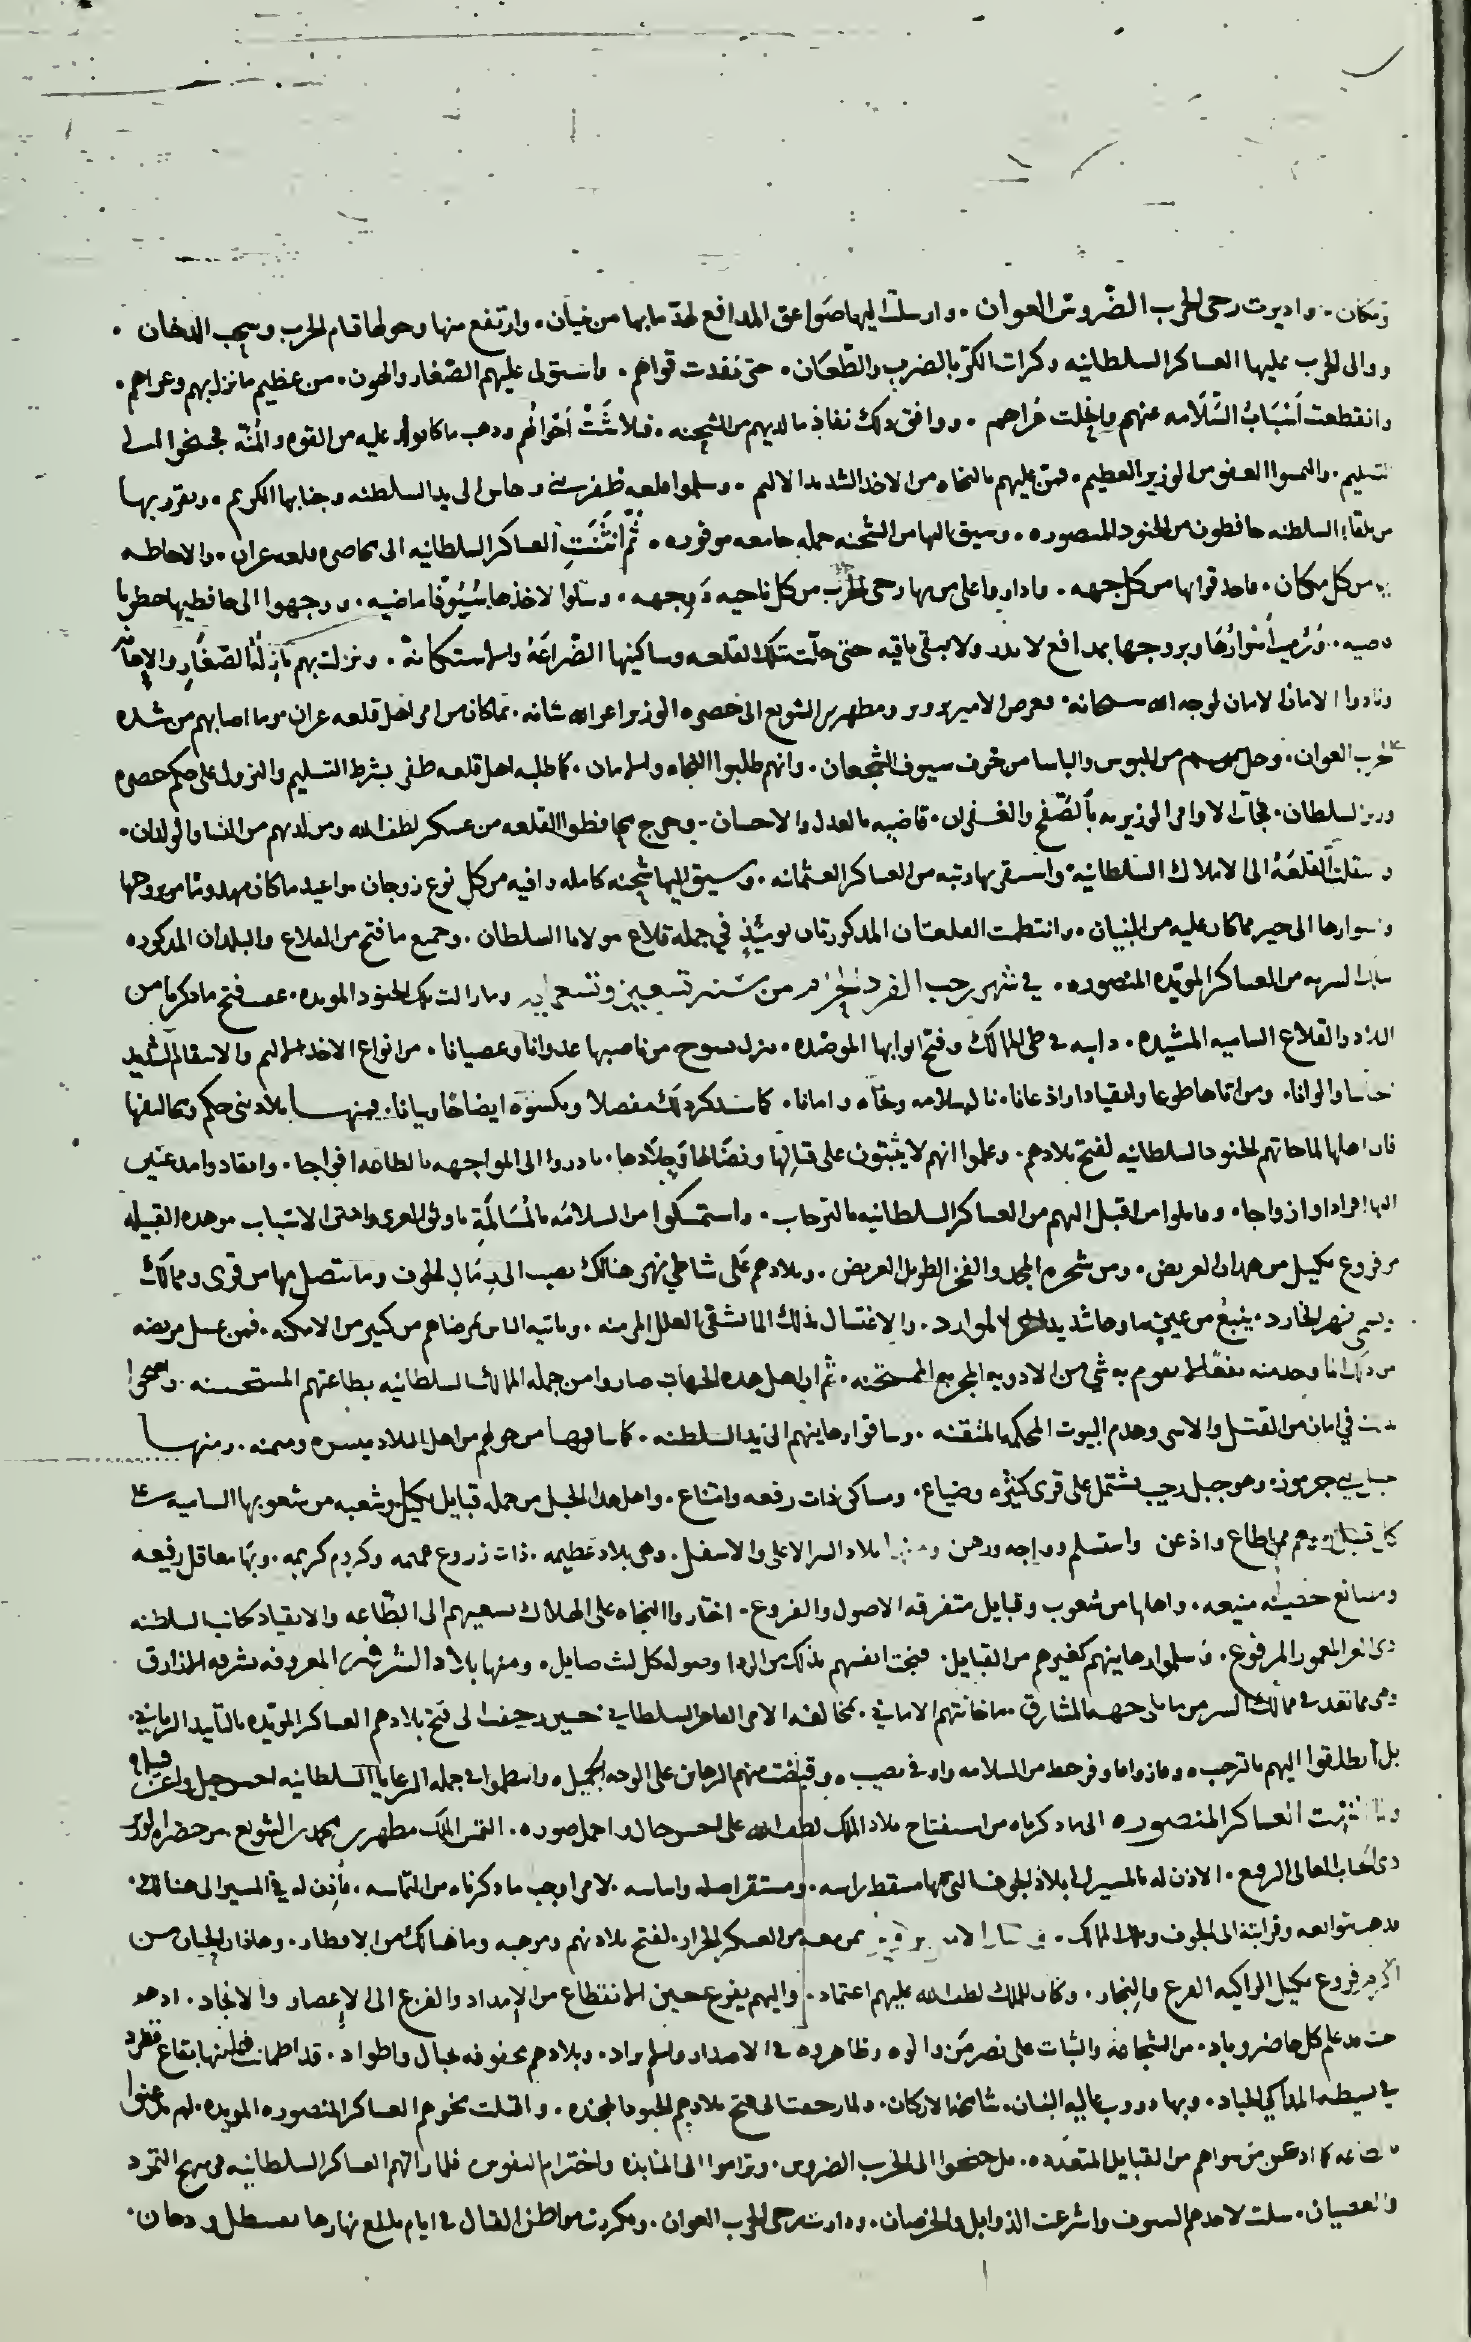 ومكان. واديرت رحى الحرب الضروس العوان. وارسلت اليها صواعق المدافع لهد ما بها من بنيان. وارتفع منها وحولها قتام الحرب وسحب الدخان.
ووالى الحرب عليها العساكر السلطانيه وكرات الكر بالضرب والطعان. حتى نفدت قواهم. واستولى عليهم الصغار والهون. من عظيم ما نزل بهم وعراهم.
وانقطعت أسباب السلامه عنهم وانحلت عراهم. ووافق ذلك نفاذ ما لديهم من الشحنه. فتلاشت أحوالهم وذهب ما كانوا عليه من القوه والمنه فجنحوا الى
التسليم. والتمسوا العفو من الوزير العظيم. فمن عليهم بالنجاه من الاخذ الشديد الاليم. وسلموا قلعه ظفر الى يد السلطنه وجنابها الكريم. وتقرر بها
من تلقاء السلطنه حافظون من الجنود المنصوره. وسيق اليها من الشحنه جمله جامعه موفوره. ثم انثنت العساكر السلطانيه الى محاصره قلعه عران. والاحاطه
من كل مكان. فاحدقوا بها من كل جهه. واداروا على من بها رحى الحرب من كل ناحيه ووجهه. وسلوا لاخذها سيوفا ماضيه. ووجهوا الى حافظيها
ورميت أسوارها وبروجها بمدافع لا تذر ولا تبقى باقيه حتى حلت بتلك القلعه وساكنيها الضراعه والاستكانة. ونزلت بهم نازلة الصغار والإهانه
ونادوا الامان الامان لوجه الله سبحانه. فعرض الامير ومطهر بن الشويع الى حضره الوزير اعز الله شانه. بما كان من امر اهل قلعه عران وما اصابهم من شده
الحرب العوان. وحل بهم من البوس والباسا من خوف سيوف الشجعان. وانهم طلبوا النجاه والامان. كما طلبه اهل قلعه ظفر بشرط التسليم والنزول على حكم حضره
وزير السلطان. فجآت الاوامر الوزيريه بالصفح والغفران. قاضيه بالعدل والاحسان. وخرج محافظوا القلعه من عسكر لطف الله ومن لديهم من النسا والولدان.
وسقلت القلعه الى الاملاك السلطانية واستقر بها رتبه من العساكر العثمانيه. وسيق اليها شحنه كامله وافيه من كل نوع زوجان واعيد ما كان مهدوما من بروجها
واسوارها الى خير مما كان عليه من البنيان. وانتظمت القلعتان المذكورتان يومئذ في جمله قلاع مولانا السلطان. وجميع ما فتح من القلاع والبلدان المذكوره
من العساكر المؤيده المنصوره. في شهر رجب الفرد الحرام من سنه تسعين وتسعمايه وما زالت تلك الجنود المويده. عقب فتح ما ذكرنا من
البلاد والقلاع الساميه المشيده. دايبه في طي الممالك وفتح ابوابها الموصده. عدوانا وعصيانا. من انواع الاخذ الاليم والانتقام الشديد
ومن اتاها طوعا وانقيادا واذعانا. نال السلامه ونجاه وامانا. كما سنذكر ذلك مفصلا ونكسوه ايضاحا وبيانا. فمنها بلاد بني حكم ومخاليفها
فان اهلها لما حاتهم الجنود السلطانيه لفتح بلادهم. وعلموا انهم لا يثبتون على قتالها ونضالها وجلادها. بادروا الى المواجهه بالطاعه افواجا. وانقادوا مذعنين
اليها افرادا وازواجا. وقابلوا من اقبل اليهم من العساكر السلطانيه بالترحاب. واستمسكوا من السلامه بالمسالمة باوثق العرى وامتن الاسباب. وهذه القبيله
من فروع بكيل من همدان العريض. ومن شجره المجد والفخر الطويل العريض. وبلادهم على شاطي نهر هنالك يصب الى رمال الجوف وما يتصل بها من قرى وممالك
يسمى نهر الخارد. ينبع من عين ماوها شديد الحر للوارد. والاغتسال بذلك الما تشفى به العلل المزمنه. وياتيه الناس بمرضاهم من كثير من الامكنه. فمن غسل مريضه
من ذلك الما وجد منه نفعا لا يقوم به شي من الادويه المجربه الممتحنه. ثم ان اهل هذه الجهات صاروا من جمله الممالك السلطانيه بطاعتهم المستحسنه. واصبحوا
في امان من القتل والاسر وهدم البيوت المحكمه المتقنه. وساقوا رهاينهم الى يد السلطنه. كما ساقها من حولهم من اهل البلاد ميسره وميمنه. ومنها
جبل بني جرموز. وهو جبل رحيب يشتمل على قرى كثيره وضياع. ومساكن ذات رفعه وامتناع. واهل هذا الجبل من جمله قبايل بكيل وشعبه من شعوبها الساميه على
كل قبيل. وهم ممن اطاع واذعن واستسلم وواجه ورهن ومنها بلاد السر الاعلى والاسفل. وهي بلاد عظيمه. ذات زروع عميمه وكروم كريمه. وبها معاقل رفيعه
ومصانع حصينه منيعه. واهلها من شعوب وقبايل متفرقه الاصول والفروع. اختاروا النجاه على الهلاك بسعيهم الى الطاعه والانقياد لجانب السلطنه
ذي العز المعمور المرفوع. وسلموا رهاينهم كغيرهم من القبايل. فنجت انفسهم بذلك من الردا وصوله كل ليث صايل. ومنها بلاد الشرف المعروفه بشرفه
وهي مما تعد في ممالك السر من ما يلي جهه المشارق. ما خانتهم الاماني. بمخالفه الامر القاهر السلطاني حين دنت الى فتح بلادهم العساكر المؤيده بالتأييد الرباني.
بل انطلقوا اليهم بالترحيب. وفازوا باوفر حظ من السلامه واوفى نصيب. وقبضت منهم الرهاين على الوجه الجميل. وانتظموا في جمله الرعايا السلطانيه احسن جيل واعز قبيل
ولما انثنت العساكر المنصوره الى ما ذكرناه من استفتاح بلاد الملك لطف الله على احسن حال واجمل صوره. التمس الملك مطهر بن محمد بن الشويع من حضره الوزير
ذي الجناب العالي الرفيع. الاذن له بالمسير الى بلاد الجوف التي بها مسقط راسه. ومستقر اصله واساسه. لامر اوجب ما ذكرناه من التماسه. فأذن له في المسير الى هنالك.
فذهب بتوابعه وقرابته الى الجوف وتلك الممالك. بمن معه من العسكر الجرار. لفتح بلاد نهم ومرهبه وما هنالك من الاقطار. وهاذان الحيان من
اكرم فروع بكيل الزاكيه الفرع والنجار. وكان للملك لطف الله عليهم اعتماد. واليهم يفزع حين الانقطاع من الإمداد والفزع الى الإعصار والانجاد. اذ هو
قد علم كل حاضر وباد. من الشجاعه والثبات على نصر من والوه وظاهروه في الاصدار والايراد. وبلادهم محفوفه بجبال واطواد. قد اطمانت بينها بقاع تطرد
في بسيطه المذاكي الجياد. وبها دروب عاليه البنيان. شامخه الاركان. ولما زحفت الى فتح بلادهم الجنود المجنده. واقبلت نحوهم العساكر المنصوره المويده. لم يذعنوا
كما اذعن من سواهم من القبايل المتعدده. بل جنحوا الى الحرب الضروس. وتراموا الى المنابذه واخترام النفوس فلما راتهم العساكر السلطانيه في نهج التمرد
والعصيان. سلت لاخذهم السيوف واشرعت الذوابل والخرصان. ودارت رحى الحرب العوان. وتكررت مواطن القتال في ايام